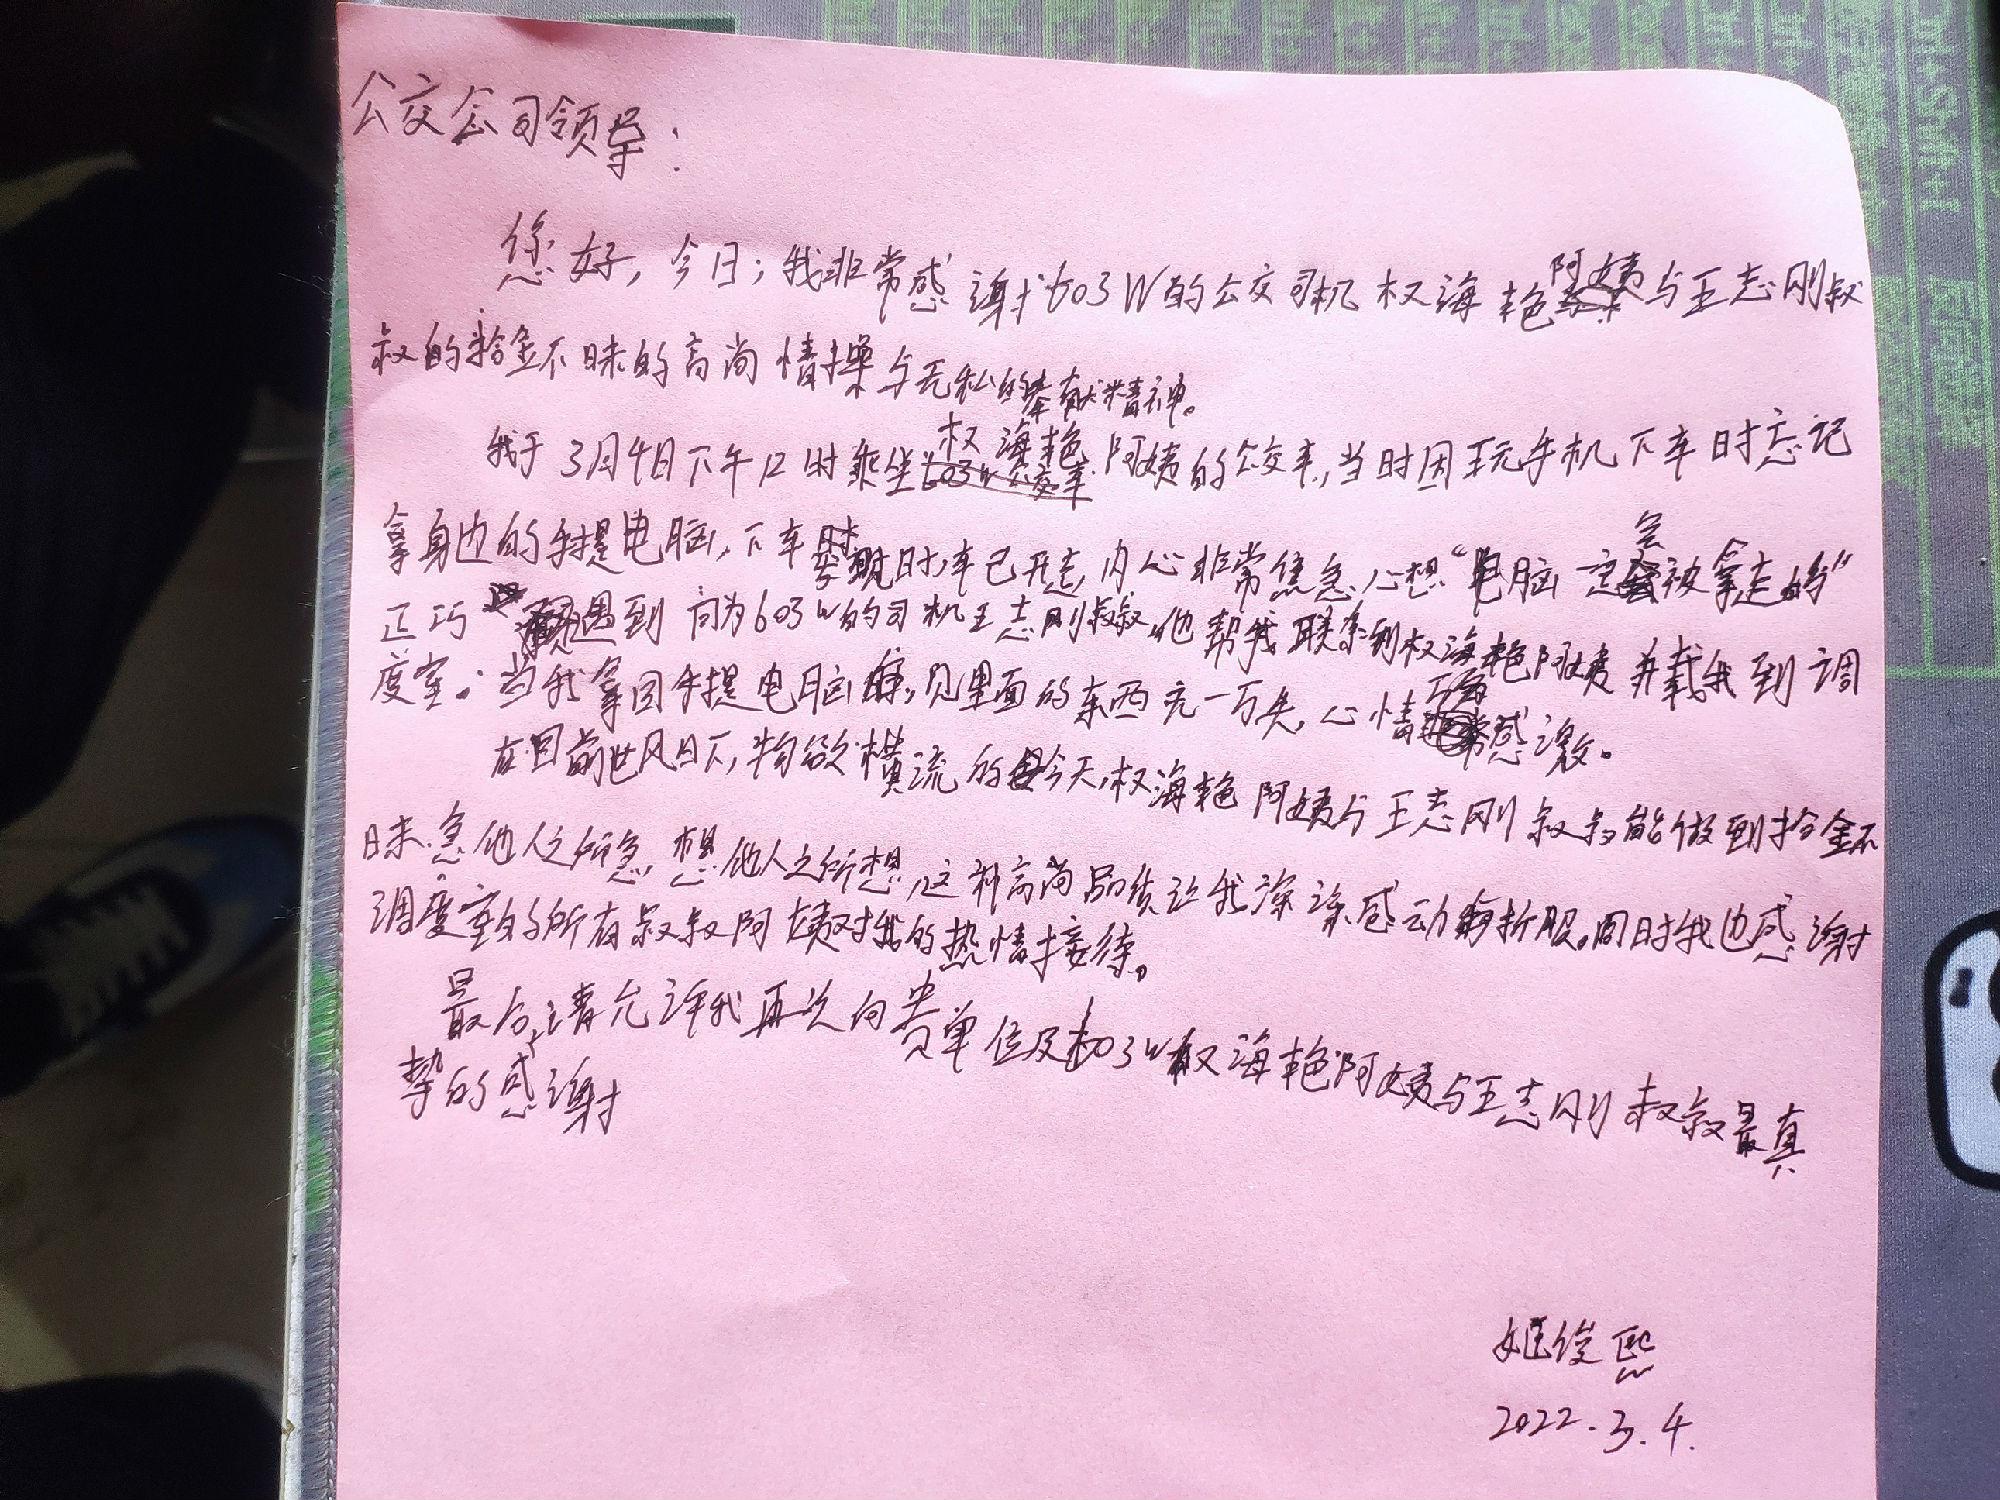 公交公司领导：
您好，今日；我非常感谢603W的公交司机权海艳阿姨与王志刚叔
叔的拾金不昧的高尚情操与无私的奉献精神。
我于3月4日下午12时乘坐权海艳阿姨的公交车，当时因玩手机下车时忘记
拿身边的手提电脑，下车发现时，车已开走，内心非常焦急，心想“电脑定会被拿走的”
正巧遇到同为603W的司机王志刚叔叔，他帮我联系到权海艳阿姨并载我到调
度室。当我拿回手提电脑，见里面的东西无一万失，心情万分感激。
在目前世风日下，物欲横流的今天，权海艳阿姨与王志刚叔叔能做到拾金不
昧，急他人之所急，想他人之所想，这种高尚品质让我深深感动折服。同时我也感谢
调度室的所有叔叔阿姨对我的热情接待。
最后，请允许我再次向贵单位及603W权海艳阿姨与王志刚叔叔最真
挚的感谢
姬俊熙
2022.3.4.